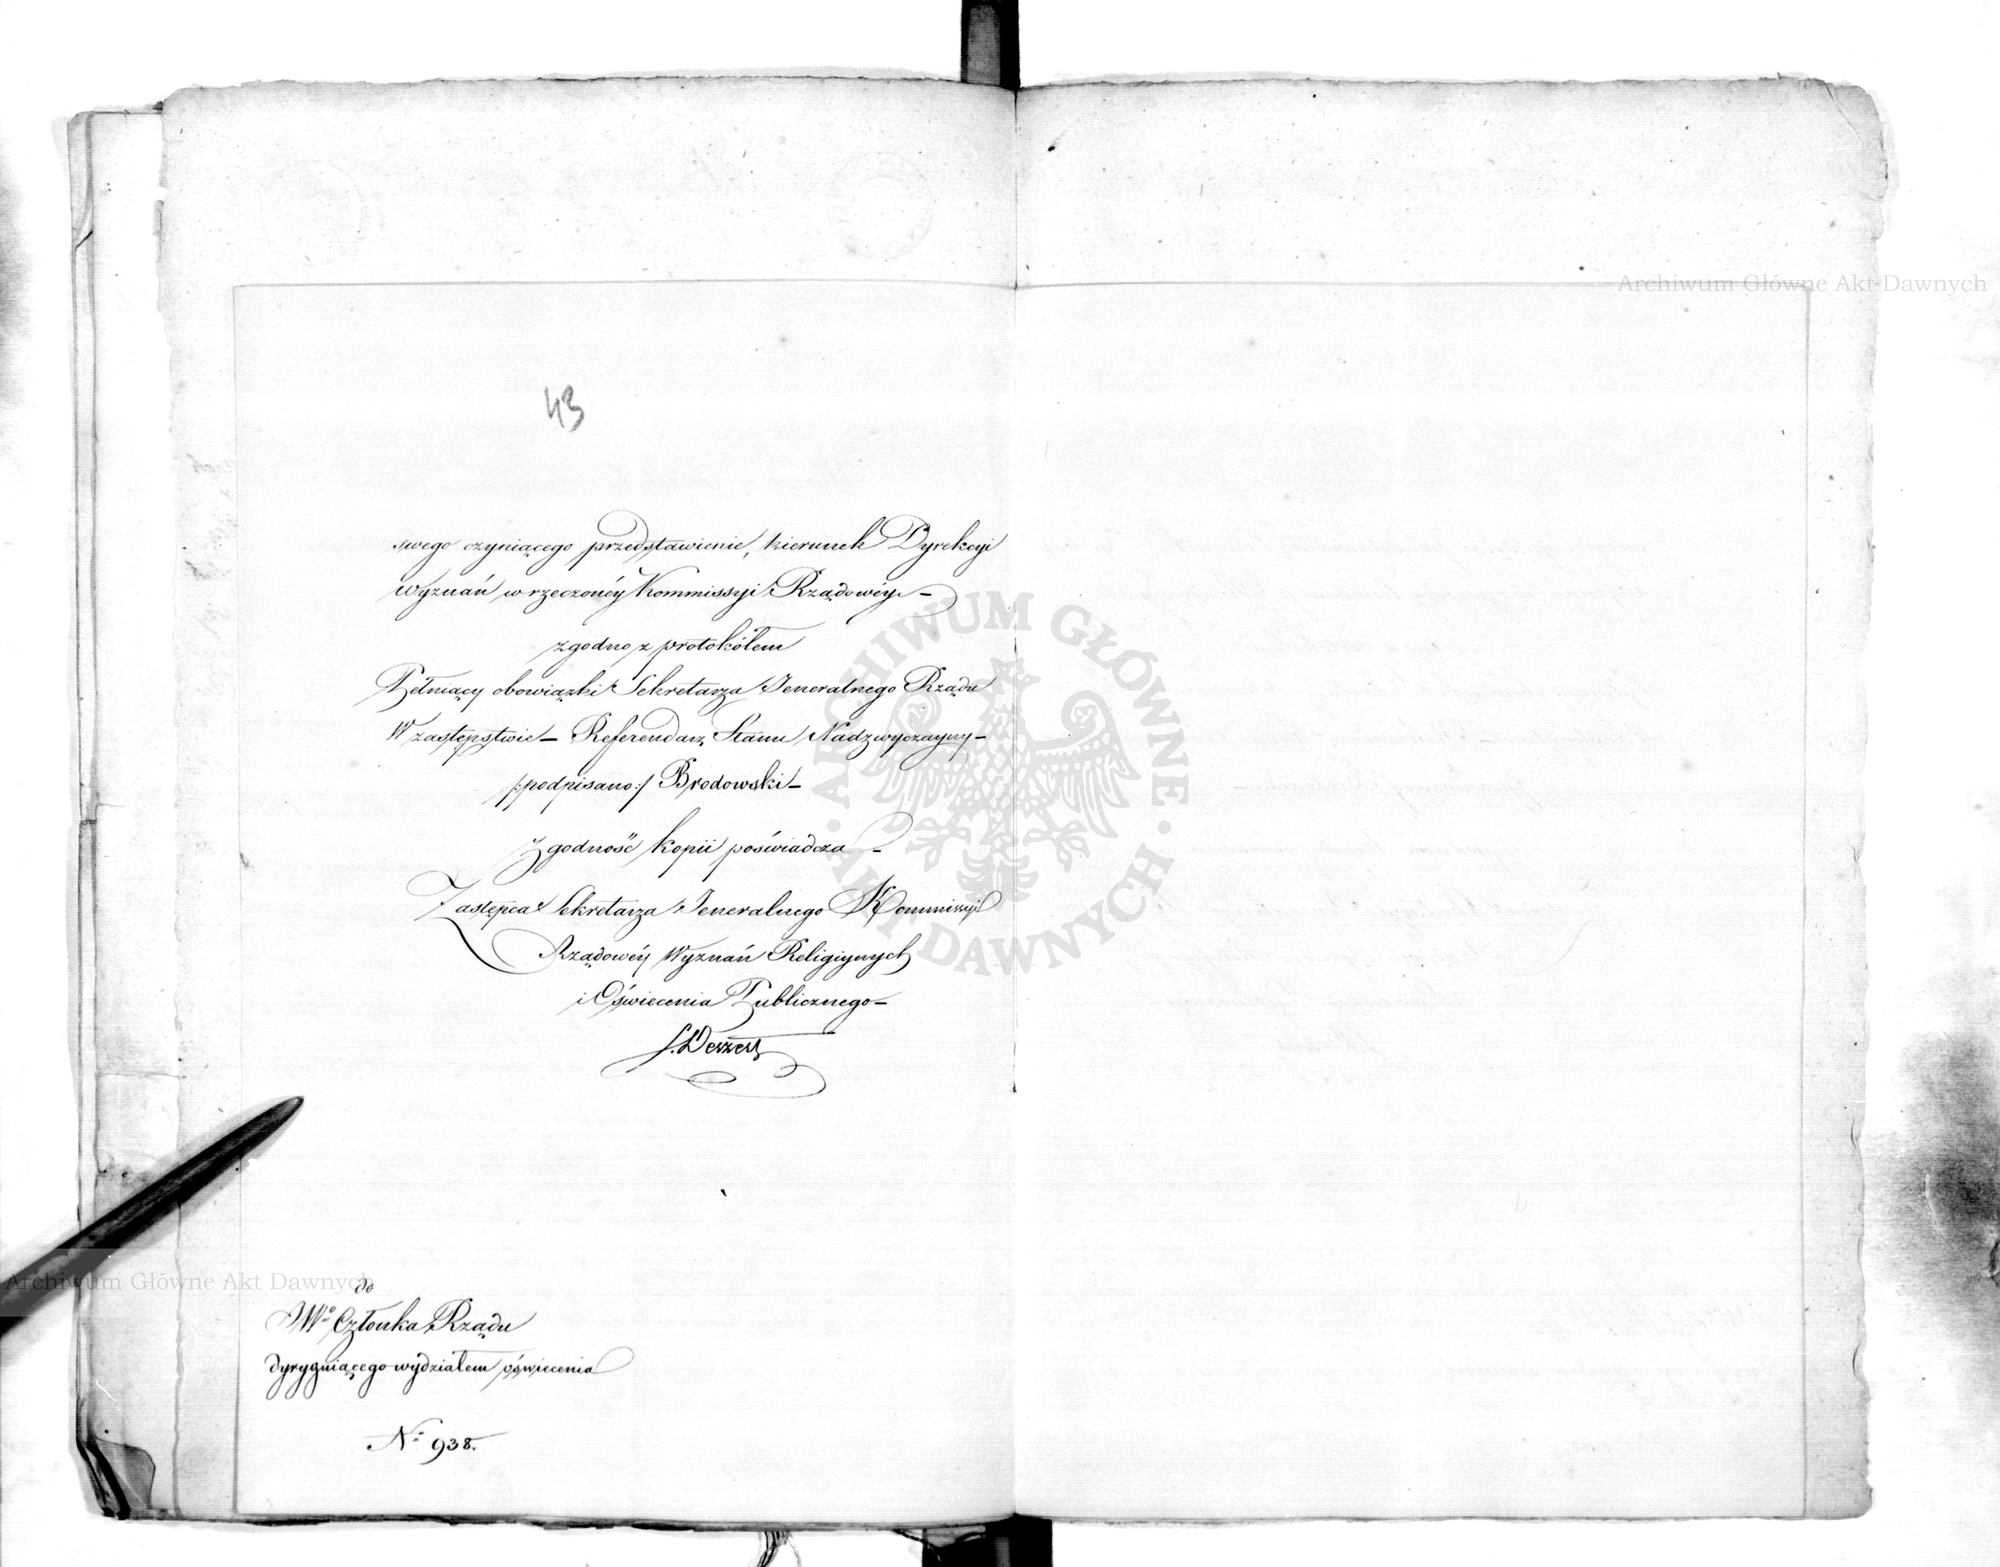 Archiwum Główne Akt Dawnych
43
swego czyniącego przedstawienie, kierunek Dyrekcyi
Wyznań w rzeczonéy Kommissyi Rządowéy. –
zgodno z protokółem
Pełniący obowiązki Sekretarza Jeneralnego Rządu
W zastępstwie – Referendarz Stanu Nadzwyczayny –
/:podpisano:/ Brodowski –
Zgodność kopii poświadcza –
Zastępca Sekretarza Jeneralnego Kommissyi
Rządowéy Wyznań Religiynych
i Oświecenia Publicznego –
ARCHIWUM GŁÓWNE
AKT DAWNYCH
Archiwum Główne Akt Dawnych
do
JWo Członka Rządu
dyryguiącego wydziałem oświecenia
No 938.